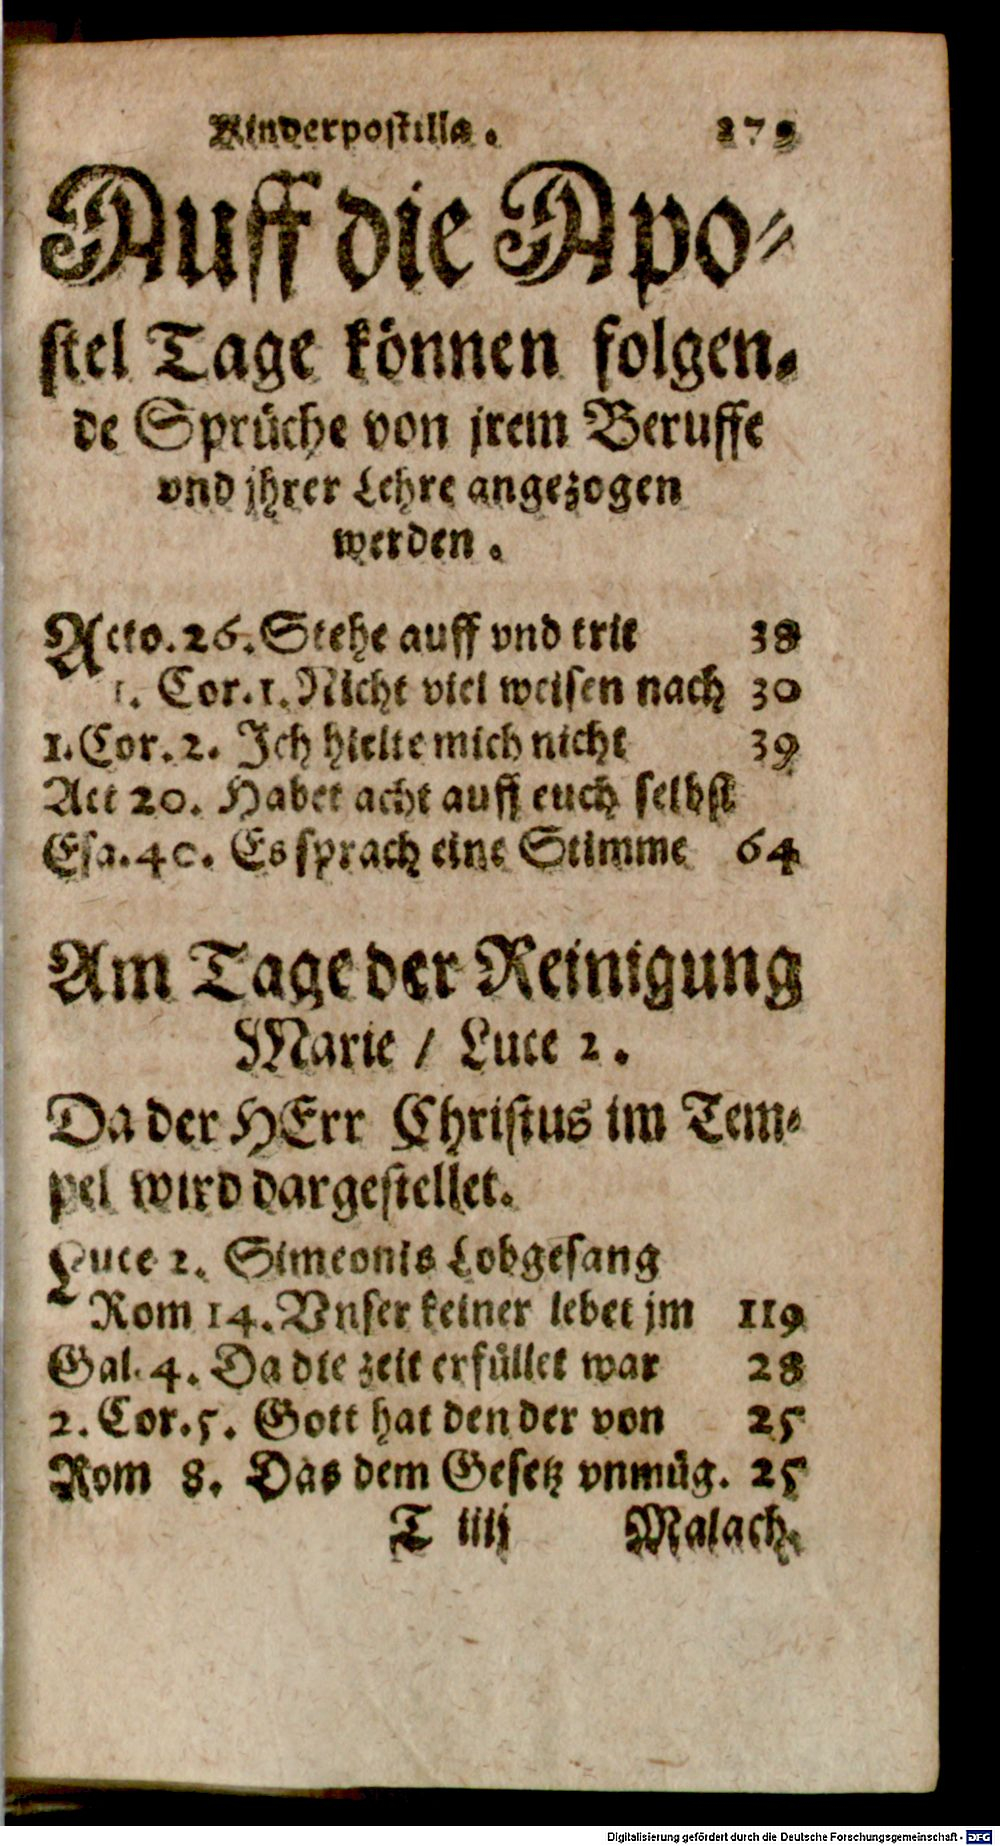 Kinderpostilla. 279
Auff die Apo⸗
stel Tage können folgen⸗
de Sprüche von jrem Beruffe
vnd jhrer Lehre angezogen
werden.
Acto. 26. Stehe auff vnd trit 38
1. Cor. 1. Nicht viel weisen nach 30
1. Cor. 2. Ich hielte mich nicht 39
Act 20. Habet acht auff euch selbst
Esa. 40. Es sprach eine Stimme 64
Am Tage der Reinigung
Marie / Luce 2.
Da der HErr Christus im Tem⸗
pel wird dargestellet.
Luce 2. Simeonis Lobgesang
Rom 14. Vnser keiner lebet jm 119
Gal. 4. Da die zeit erfüllet war 28
2. Cor. 5. Gott hat den der von 25
Rom 8. Das dem Gesetz vnmüg. 25
T iiij Malach.
Digitalisierung gefördert durch die Deutsche Forschungsgemeinschaft - DFG